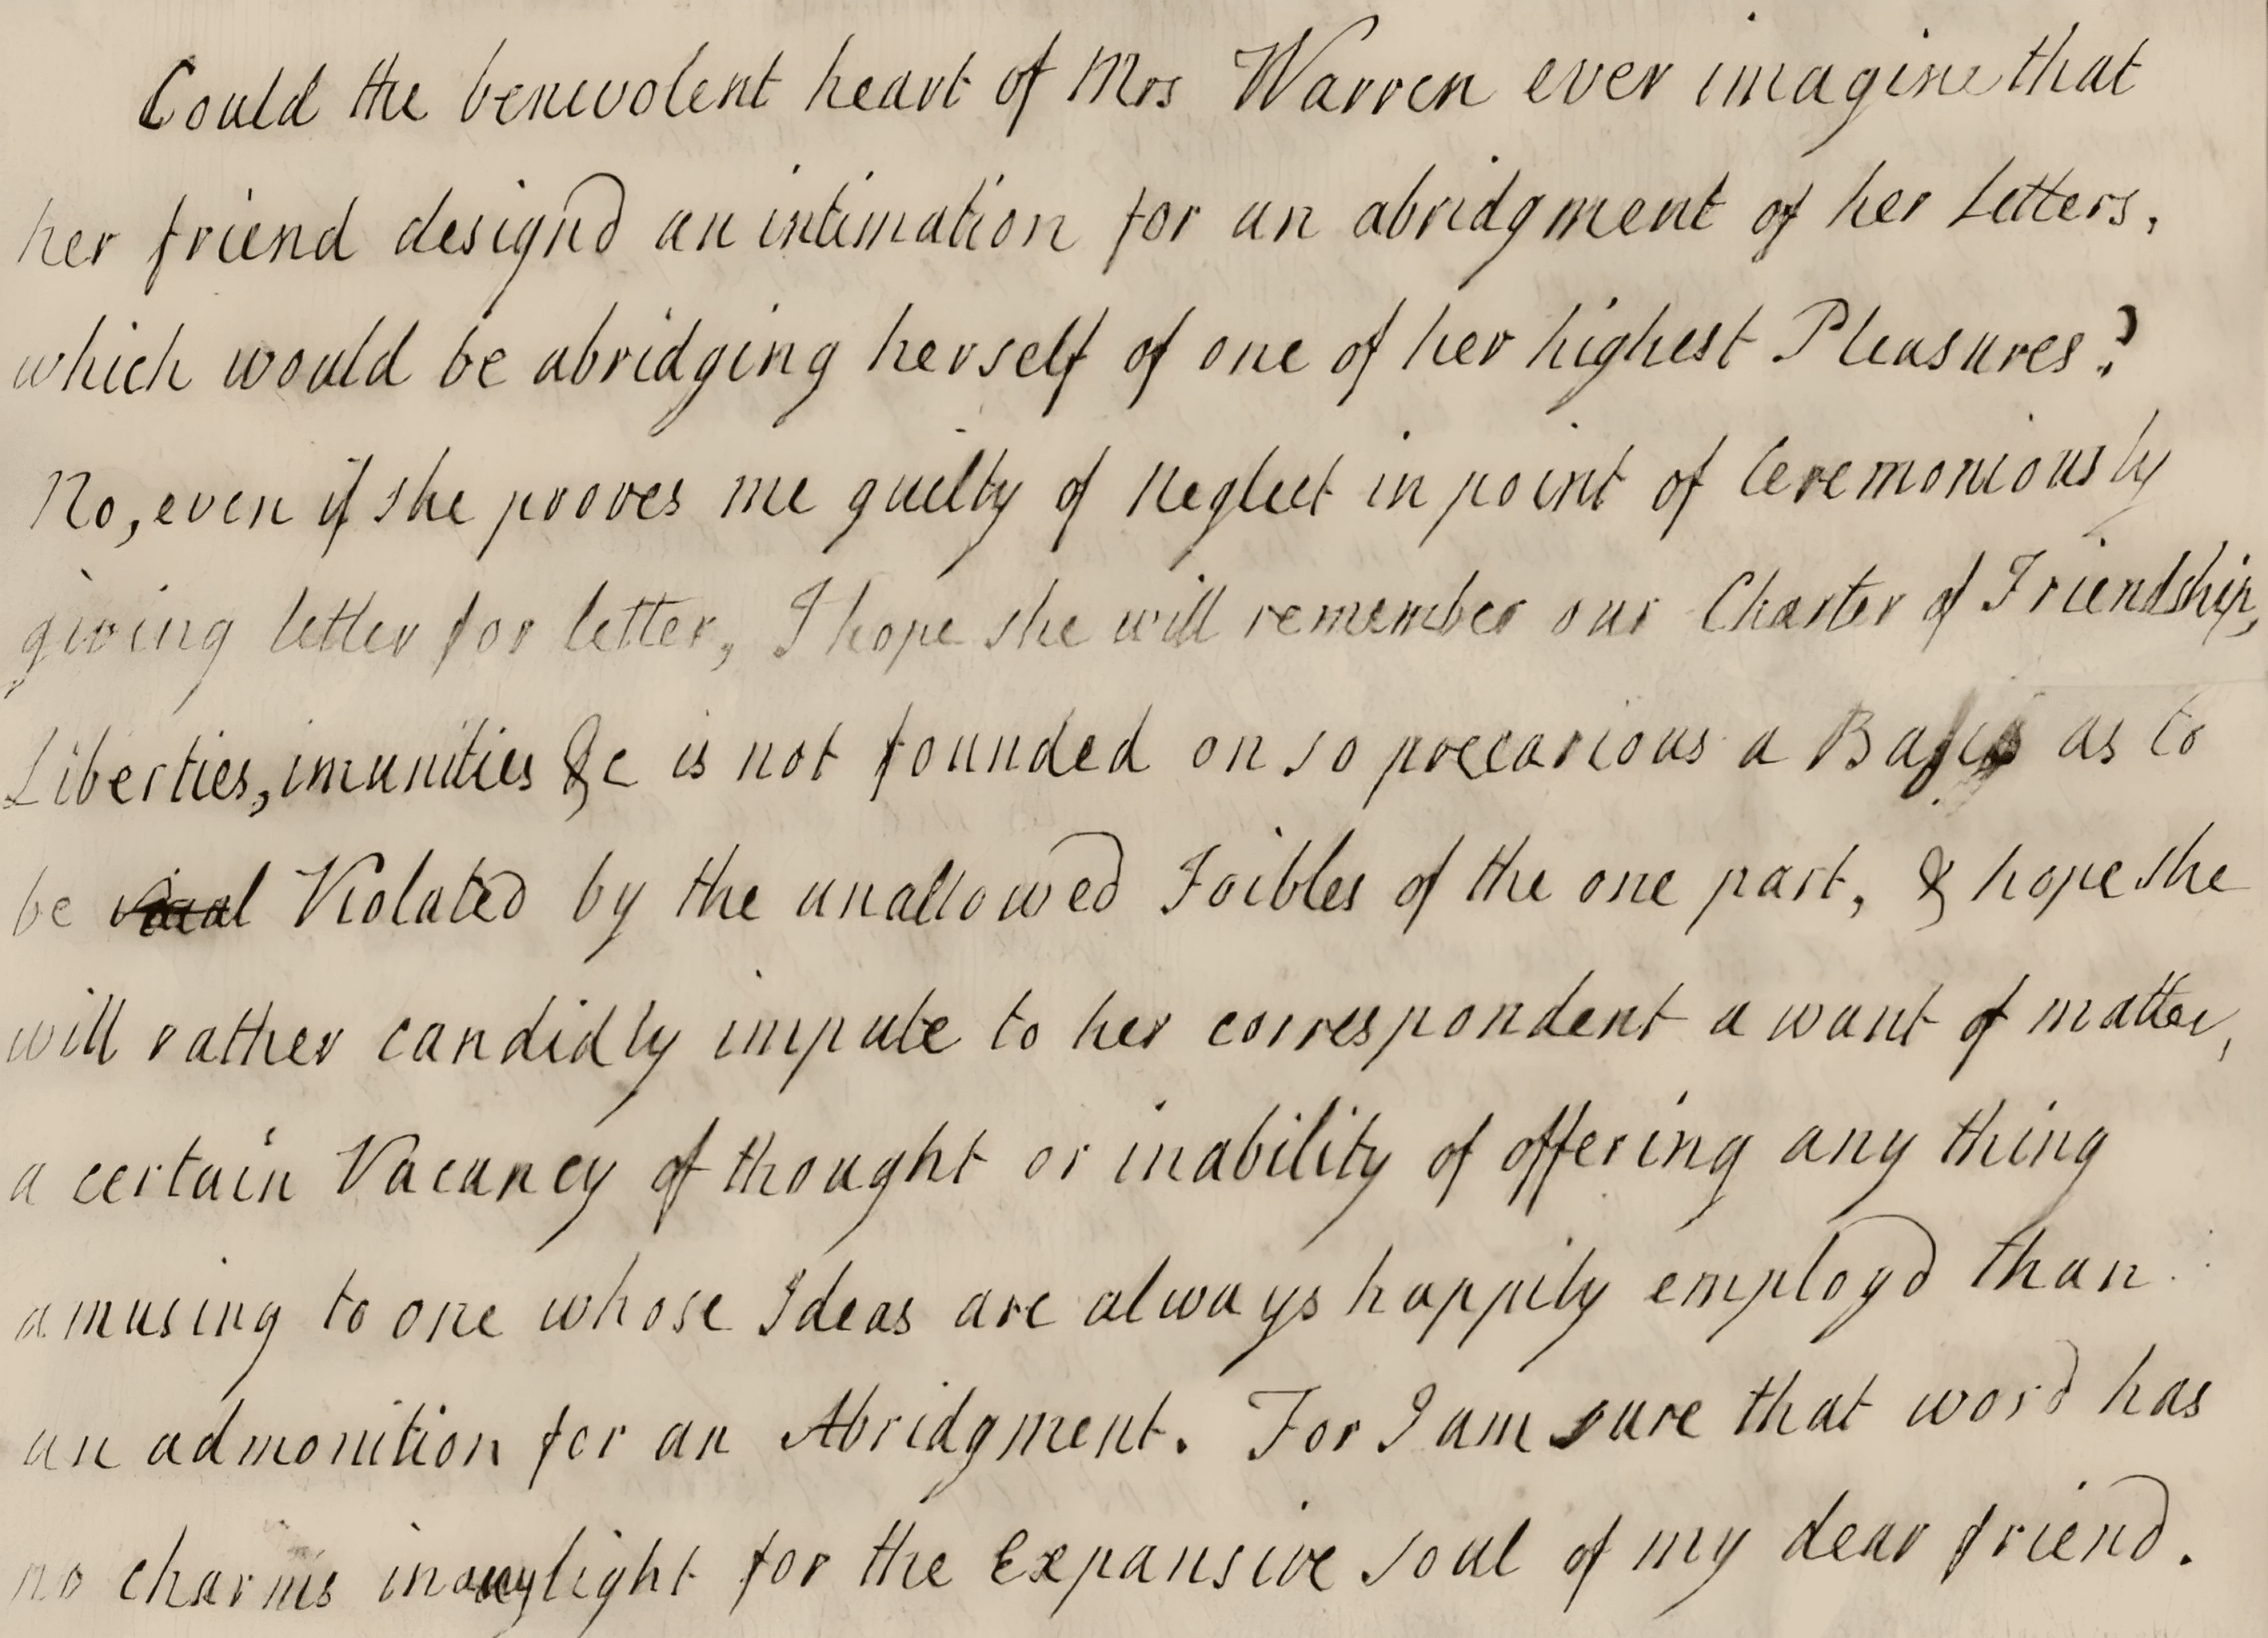 Could the benevolent heart of Mrs Warren ever imagine that
her friend designd an intimation for an abridgment of her Letters,
which would be abridging herself of one of her highest Pleasures?
No, even if she prooves me guilty of Neglect in point of Ceremoniously
giving letter for letter, I hope she will remember our Charter of Friendship,
Liberties, imunities &c is not founded on so precarious a Basis as to
be Violated by the unallowed Foibles of the one part, & hope she
will rather candidly impute to her correspondent a want of matter,
a certain Vacancy of thought or inability of offering any thing
amusing to one whose Ideas are always happily employd than
an admonition for an Abridgment. For I am sure that word has
no charms in any light for the Expansive soul of my dear friend.